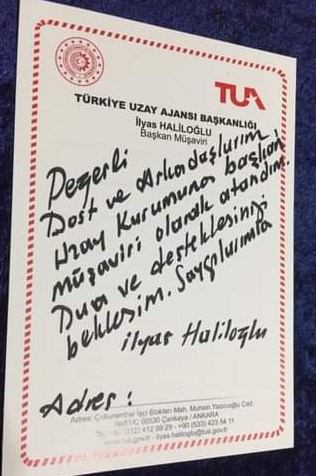 TUA
TÜRKİYE UZAY AJANSI BAŞKANLIĞI
İlyas HALİLOĞLU
Başkan Müşaviri
Değerli
Dost ve Arkadaşlarım
Uzay Kurumuna başkan
müşaviri olarak atandım.
Dua ve desteklesinizi
beklesim. Saygılarımla
ilyas Haliloğlu
Adres :
Adres: Çukurambar İşçi Blokları Mah. Muhsin Yazıcıoğlu Cad.
06530 Çankaya / ANKARA
(312) 412 99 29 - +90 (533) 423 54 11
www.tua.gov.tr ilyas.haliloglu@tua.gov.tr